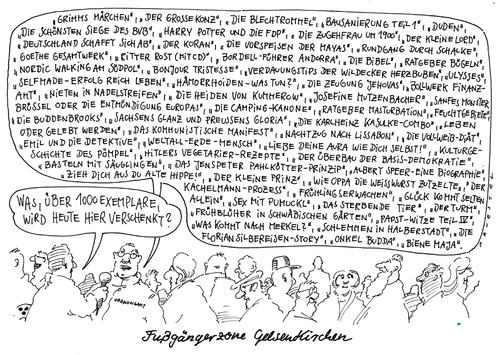 „GRIMMS MÄRCHEN", „DER GROSSE KONZ", „DIE BLECHTROMMEL", „BAUSANIERUNG TEIL 1", „DUDEN",
„DIE SCHÖNSTEN SIEGE DES BVB", „HARRY POTTER UND DIE FDP", „DIE ZUGEHFRAU UM 1900", „DER KLEINE LORD",
„DEUTSCHLAND SCHAFFT SICH AB", „DER KORAN", „DIE VORSPEISEN DER MAYAS", „RUNDGANG DURCH SCHALKE",
„GOETHE GESAMTWERK", „RITTER ROST (MIT CD)", „BORDELL-FÜHRER ANDORRA", „DIE BIBEL", „RATGEBER BÜGELN",
„NORDIC WALKING AM SÜDPOL", „BONJOUR TRISTESSE", „VERDAUUNGSTIPS DER WILDECKER HERZBUBEN", „ULYSSES",
„SELFMADE-ERFOLG REICH LEBEN", „HÄMORRHOIDEN - WAS TUN?", „DIE ZEUGUNG JEHOVAS", „BOLLWERK FINANZ-
AMT", „NIETEN IN NADELSTREIFEN", „DIE HEIDEN VON KUMMEROW", „JOSEFINE MUTZENBACHER", „SANFTES MONSTER
BRÜSSEL ODER DIE ENTMÜNDIGUNG EUROPAS", „DIE CAMPING-KARONE", „RATGEBER MASTURBATION", „FEUCHTGEBIETE",
„DIE BUDDENBROOKS", „SACHSENS GLANZ UND PREUSSENS GLORIA", „DIE KARLHEINZ KASULKE-COMBO", „LEBEN
ODER GELEBT WERDEN", „DAS KOMMUNISTISCHE MANIFEST", „NACHTZUG NACH LISSABON", „DIE VOLLWEIB-DIÄT",
„EMIL UND DIE DETEKTIVE", „WELTALL-ERDE-MENSCH", „LIEBE DEINE AURA WIE DICH SELBST!", „KULTURGE-
SCHICHTE DES PÖMPEL", „HITLERS VEGETARIER-REZEPTE", „DER ÜBERBAU DER BASIS-DEMOKRATIE",
„BASTELN MIT SÄUGLINGEN", „DAS JENS PETER PAHLKÖTTER-PRINZIP", „ALBERT SPEER-EINE BIOGRAPHIE",
„ZIEH DICH AUS DU ALTE HIPPE", „DER KLEINE PRINZ", „WIE OPPA DIE WEISSWURST ZUTZELTE", „DER
KACHELMANN-PROZESS", „FRÜHLINGS ERWACHEN", „GLÜCK KOMMT SELTEN
ALLEIN", „SEX MIT PUMUCKL", „DAS STERBENDE TIER", „DER TURM",
„FRÜHBLÜHER IN SCHWÄBISCHEN GÄRTEN", „PAPST-WITZE TEIL IV",
„WAS KOMMT NACH MERKEL?", „SCHLEMMEN IN HALBERSTADT", „DIE
FLORIAN SILBEREISEN-STORY", „ONKEL BUDDA", „BIENE MAJA".
WAS, ÜBER 1000 EXEMPLARE,
WIRD HEUTE HIER VERSCHENKT?
ORDNUNGSAMT
Fußgängerzone Gelsenkirchen